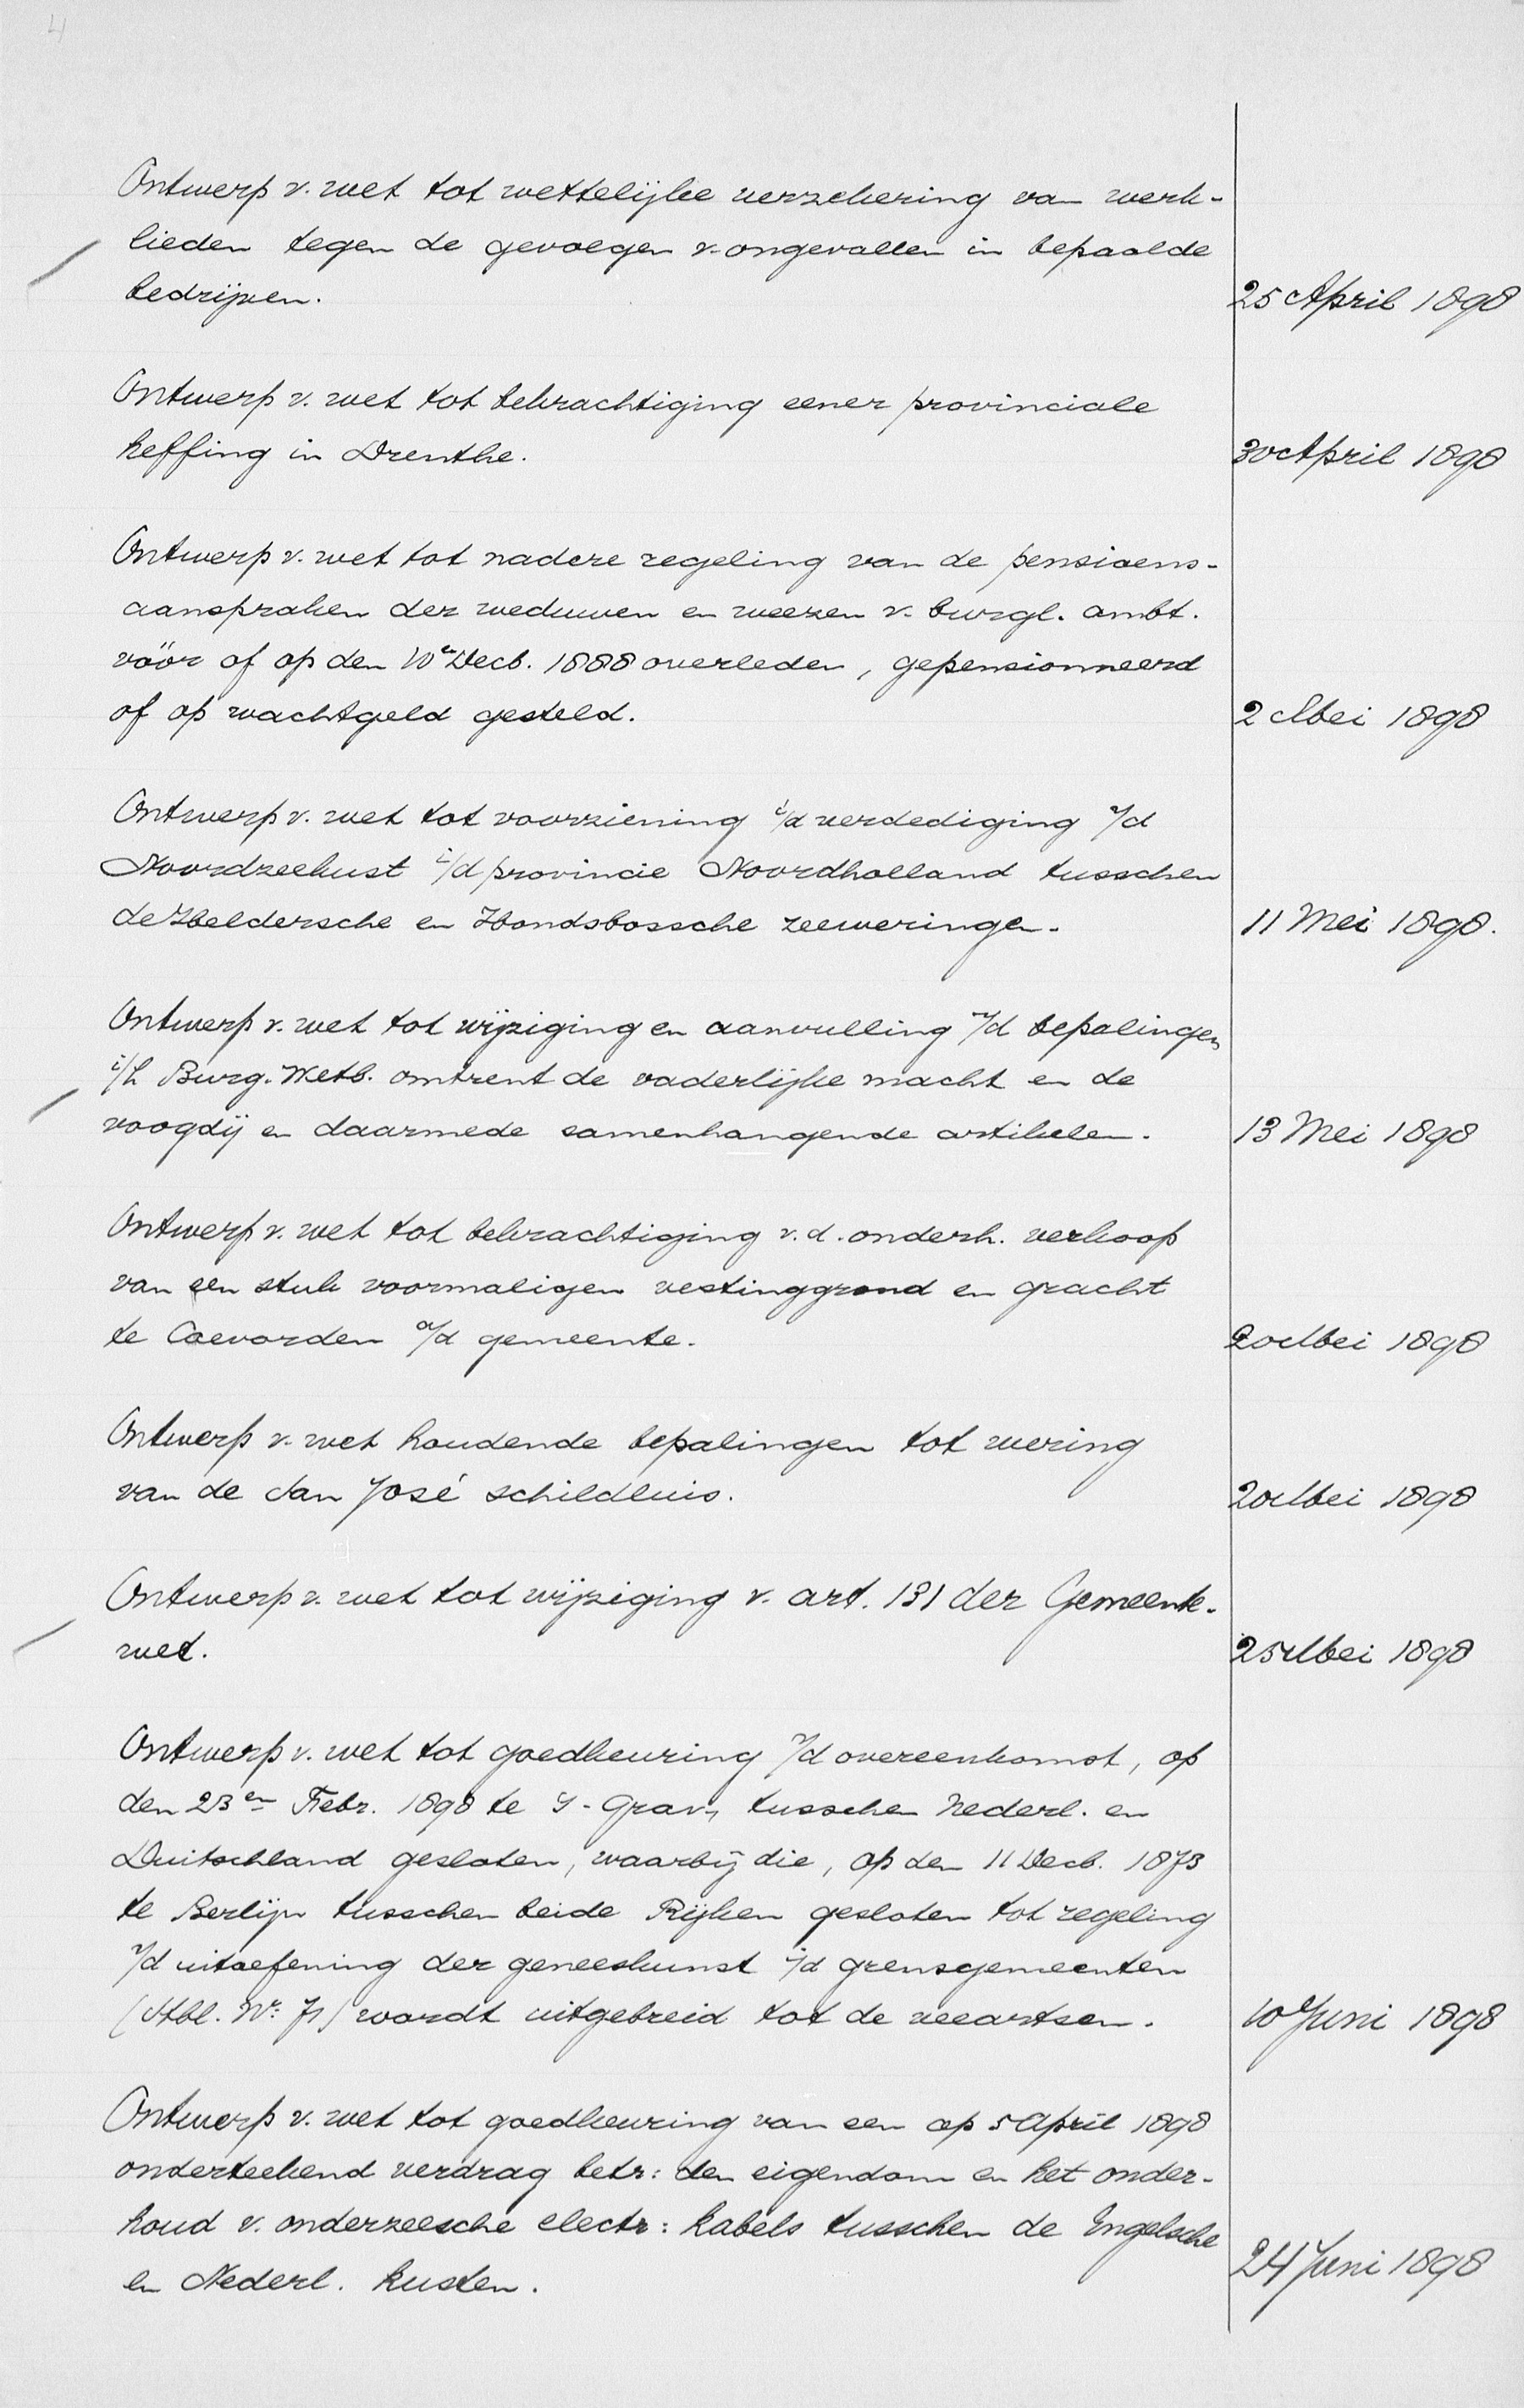 4
Ontwerp v. wet tot wettelijke verzekering van werk-
lieden tegen de gevolgen v. ongevallen in bepaalde
bedrijven.
25 April 1898
Ontwerp v. wet tot bekrachtiging eener provinciale
heffing in Drenthe.
30 April 1898
Ontwerp v. wet tot nadere regeling van de pensioens-
aanspraken der weduwen en weezen v. burgl. ambt.
vóór of op den 10en Decb. 1888 overleden, gepensionneerd
of op wachtgeld gesteld.
2 Mei 1898
Ontwerp v. wet tot voorziening i/d verdediging v/d
Noordzeekust i/d provincie Noordholland tusschen
de Heldersche en Hondsbossche zeeweringen.
11 Mei 1898.
Ontwerp v. wet tot wijziging en aanvulling v/d bepalingen
i/h Burg. Wetb. omtrent de vaderlijke macht en de
voogdij en daarmede samenhangende artikelen.
13 Mei 1898
Ontwerp v. wet tot bekrachtiging v. d. onderh. verkoop
van een stuk voormaligen vestinggrond en gracht
te Coevorden a/d gemeente.
20 Mei 1898
Ontwerp v. wet houdende bepalingen tot wering
van de San José schildluis.
20 Mei 1898
Ontwerp v. wet tot wijziging v. art. 131 der Gemeente-
wet.
25 Mei 1898
Ontwerp v. wet tot goedkeuring v/d overeenkomst, op
den 23en Febr. 1898 te 's-Grav. tusschen Nederl. en
Duitschland gesloten, waarbij die, op den 11 Decb. 1873
te Berlijn tusschen beide Rijken gesloten tot regeling
v/d uitoefening der geneeskunst i/d grensgemeenten
(Stbl. Nr: 71) wordt uitgebreid tot de veeartsen.
10 Juni 1898
Ontwerp v. wet tot goedkeuring van een op 5 April 1898
onderteekend verdrag betr: den eigendom en het onder-
houd v. onderzeesche electr: kabels tusschen de Engelsche
en Nederl. kusten.
24 Juni 1898